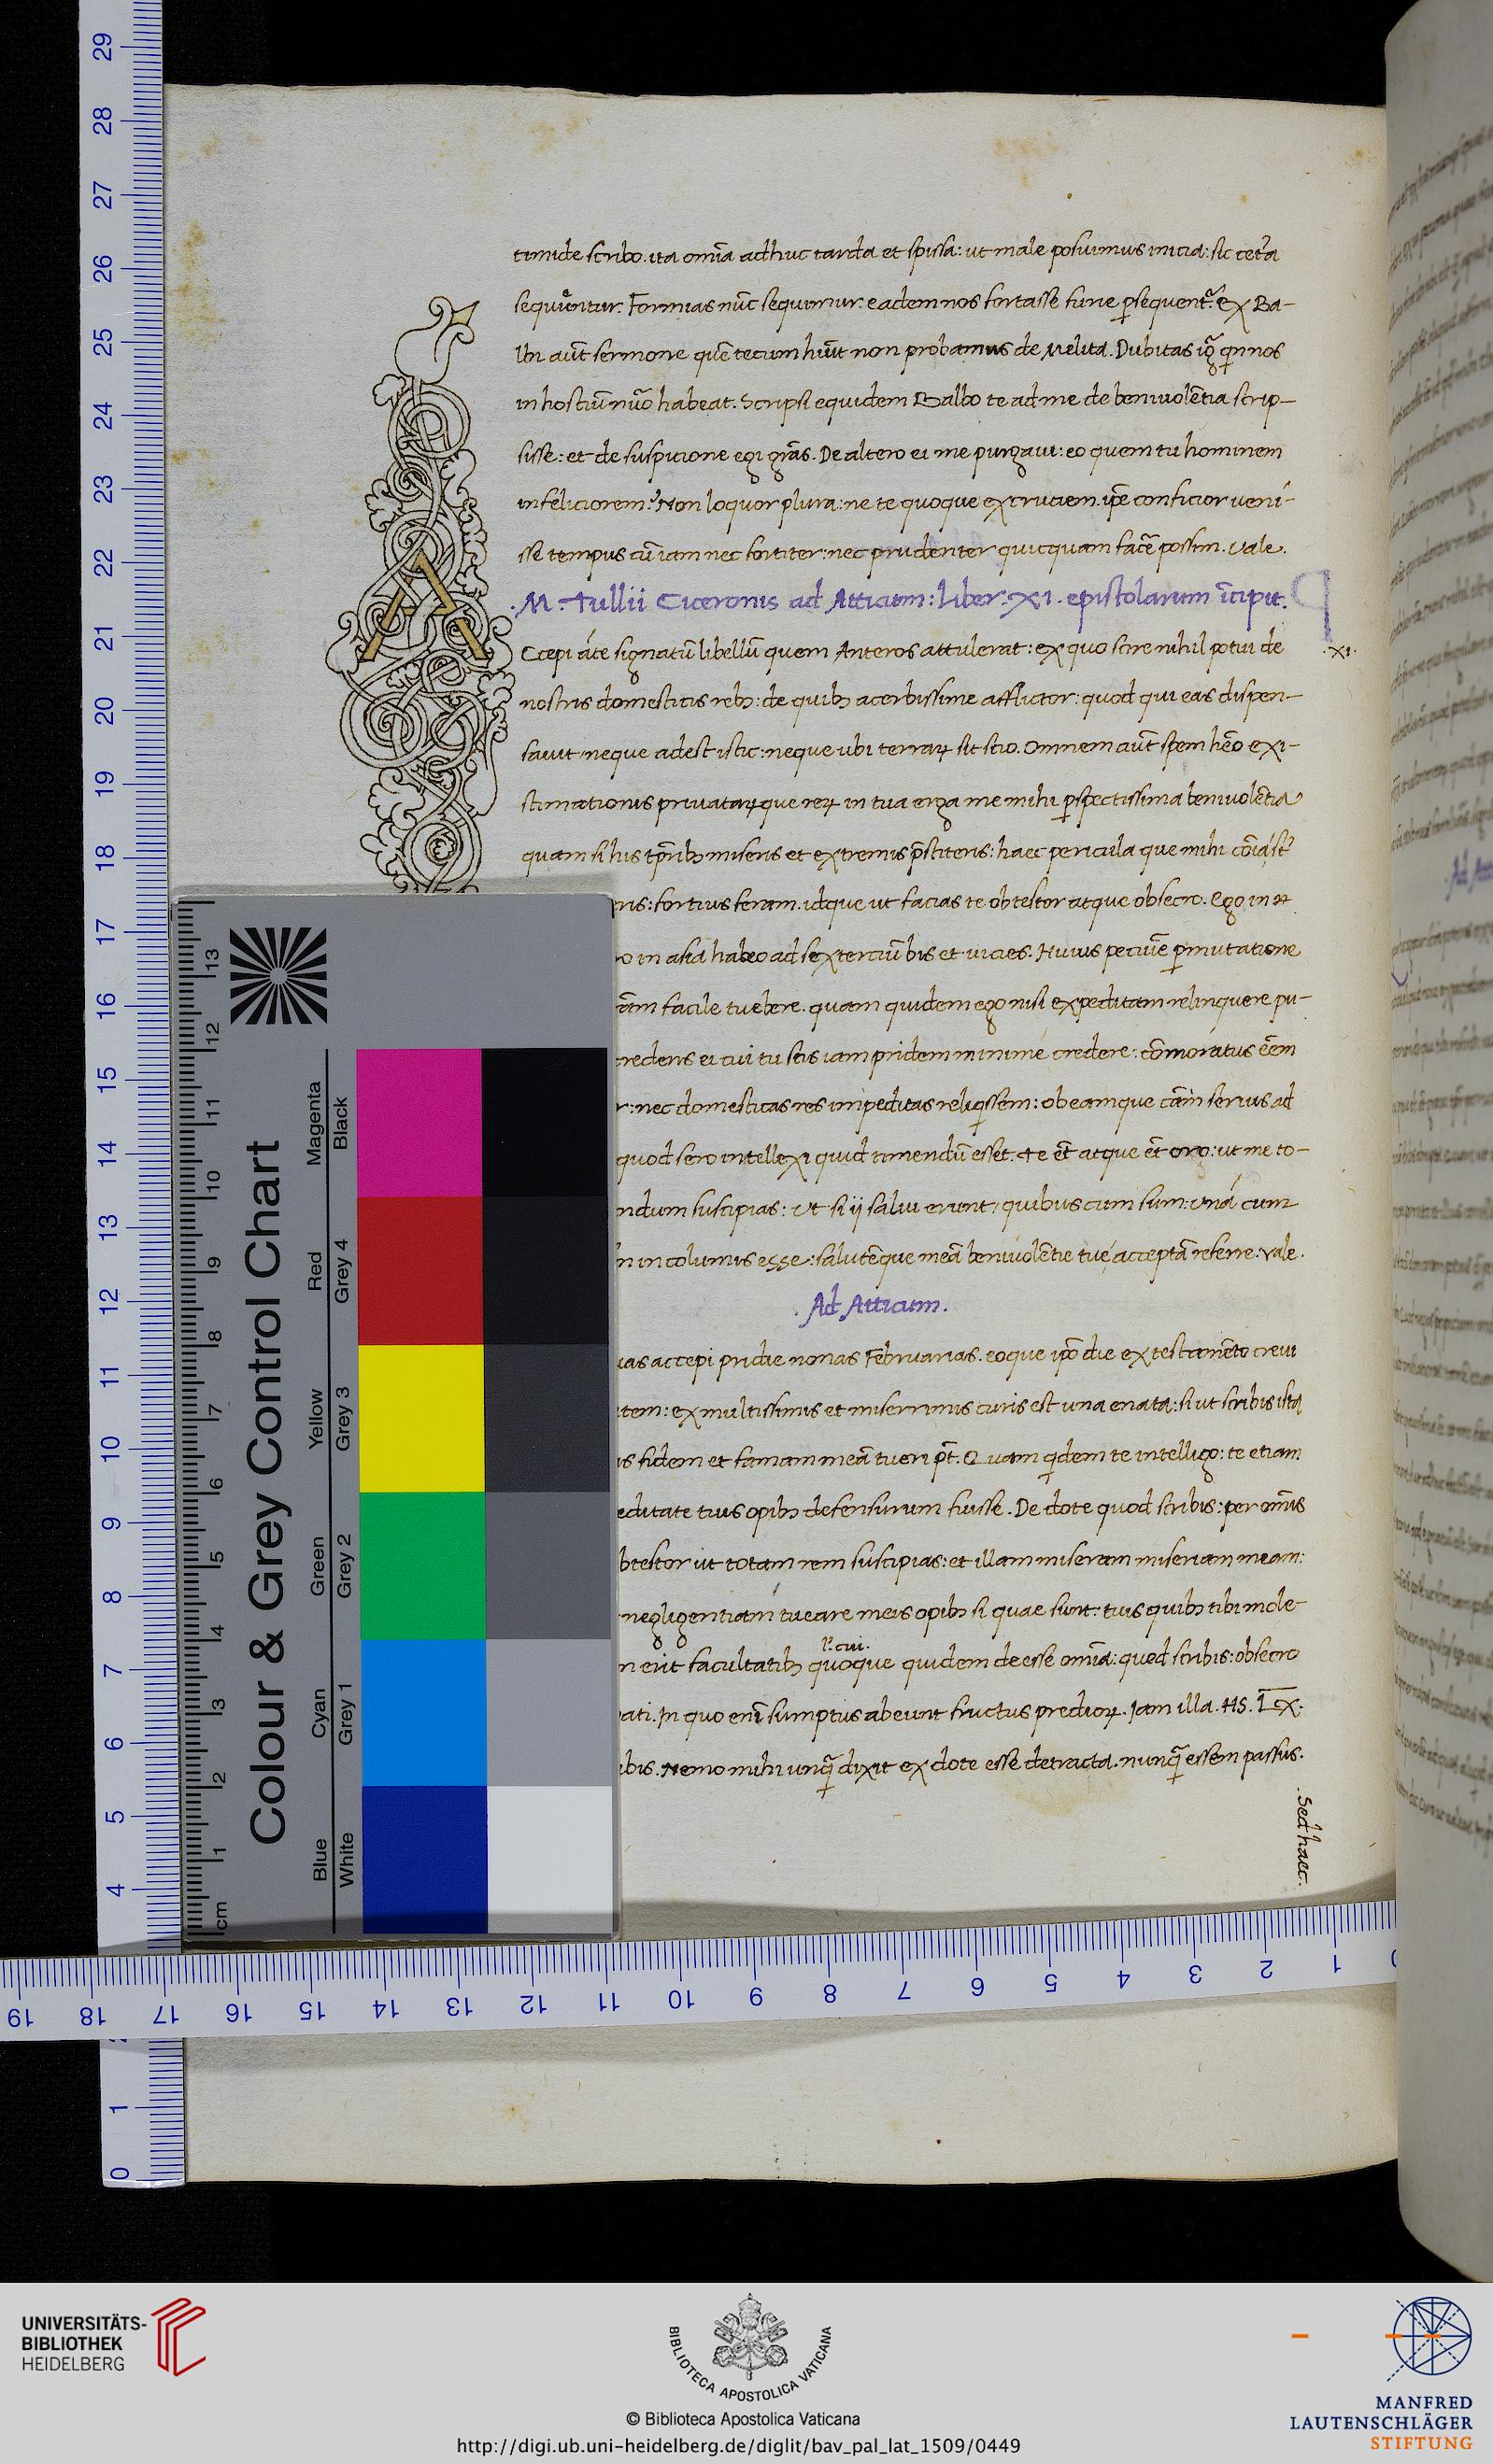 timide scribo. ita omīa adhuc tarda et spissa: ut male posuimus inicia: sic cet̄a
sequūntur. Formias nūc sequimur. eadem nos fortasse furie ꝑsequent᷑. ex Ba-
lbi aūt sermone quē tecum hūit non probamus de Melita. Dubitas igit᷑ quin nos
in hostiū nūo habeat. Scripsi equidem Balbo te ad me de beniuolētia scrip-
sisse: et de suspicione egi grās. De altero ei me purgaui: eo quem tu hominem
infeliciorem? Non loquor plura: ne te quoque excruciem. ip̄e conficior ueni-
sse tempus cū iam nec fortiter: nec prudenter quicquam facē possim. Vale.
.M. Tullii Ciceronis ad Atticum: liber. XI. epistolarum īcipit.
.XI.
Ccepi áte signatū libellū quem Anteros attulerat: ex quo scire nihil potui de
nostris domesticis rebꝫ: de quibꝫ acerbissime afflictor: quod qui eas dispen-
sauit neque adest istic: neque ubi terraꝝ sit scio. Omnem aūt spem hēo exi-
stimationis priuataꝝque reꝝ in tua erga me mihi ꝑspectissima beniuolētia
quam si his tꝑribꝫ miseris et extremis p̄stiteris: haec pericula que mihi
ris: fortius feram. idque ut facias te obtestor atque obsecro. Ego in
o in asia habeo ad sextertiū bis et uicies. Huius pecuīe ꝑmutatione
ām facile tuebere. quam quidem ego nisi expeditam relinquere pu-
credens ei cui tu scis iam pridem minime credere: cōmoratus eēm
r: nec domesticas res impeditas reliqissem: obeamque cām serius ad
quod sero intellexi quid timendū esset. Te ēt atque ēt oro: ut me to-
ndum suscipias: Ut si ij salui erunt, quibus cum sum: una cum
in columis esse: salutēque meā beniuolētie tue acceptā referre. Vale.
.Ad Atticum.
uas accepi pridie nonas Februarias. eoque ip̄o die ex testamēto creui
tem: ex multissimis et miserrimis curis est una enata: si ut scribis ista
is fidem et famam meā tueri pt̄. Quam qidem te intelligo: te etiam
editate tuis opibꝫ defensurum fuisse. De dote quod scribis: per omīs
btestor ut totam rem suscipias: et illam miseram miseriam meam:
negligentiam tueare meis opibꝫ si quae sunt: tuis quibꝫ tibi mole-
l: cui.
n erit facultatibꝫ quoque quidem deesse omīa: quod scribis: obsecro
ati. In quo enī sumptus abeunt fructus predioꝝ. Iam illa. HS. L̅X̅.
ibis. Nemo mihi unqā dixit ex dote esse detracta. nunqā essem passus.
.Sed haec.
Colour & Grey Control Chart
Magenta
Black
Red
Grey 4
Yellow
Grey 3
Green
Grey 2
Cyan
Grey 1
Blue
White
cm 1 2 3 4 5 6 7 8 9 10 11 12 13
29 28 27 26 25 24 23 22 21 20 19 18 17 16 15 14 13 12 11 10 9 8 7 6 5 4 1 0
19 18 17 16 15 14 13 12 11 10 9 8 7 6 5 4 3 2 1
UNIVERSITÄTS-
BIBLIOTHEK
HEIDELBERG
BIBLIOTECA APOSTOLICA VATICANA
© Biblioteca Apostolica Vaticana
http://digi.ub.uni-heidelberg.de/diglit/bav_pal_lat_1509/0449
MANFRED
LAUTENSCHLÄGER
STIFTUNG